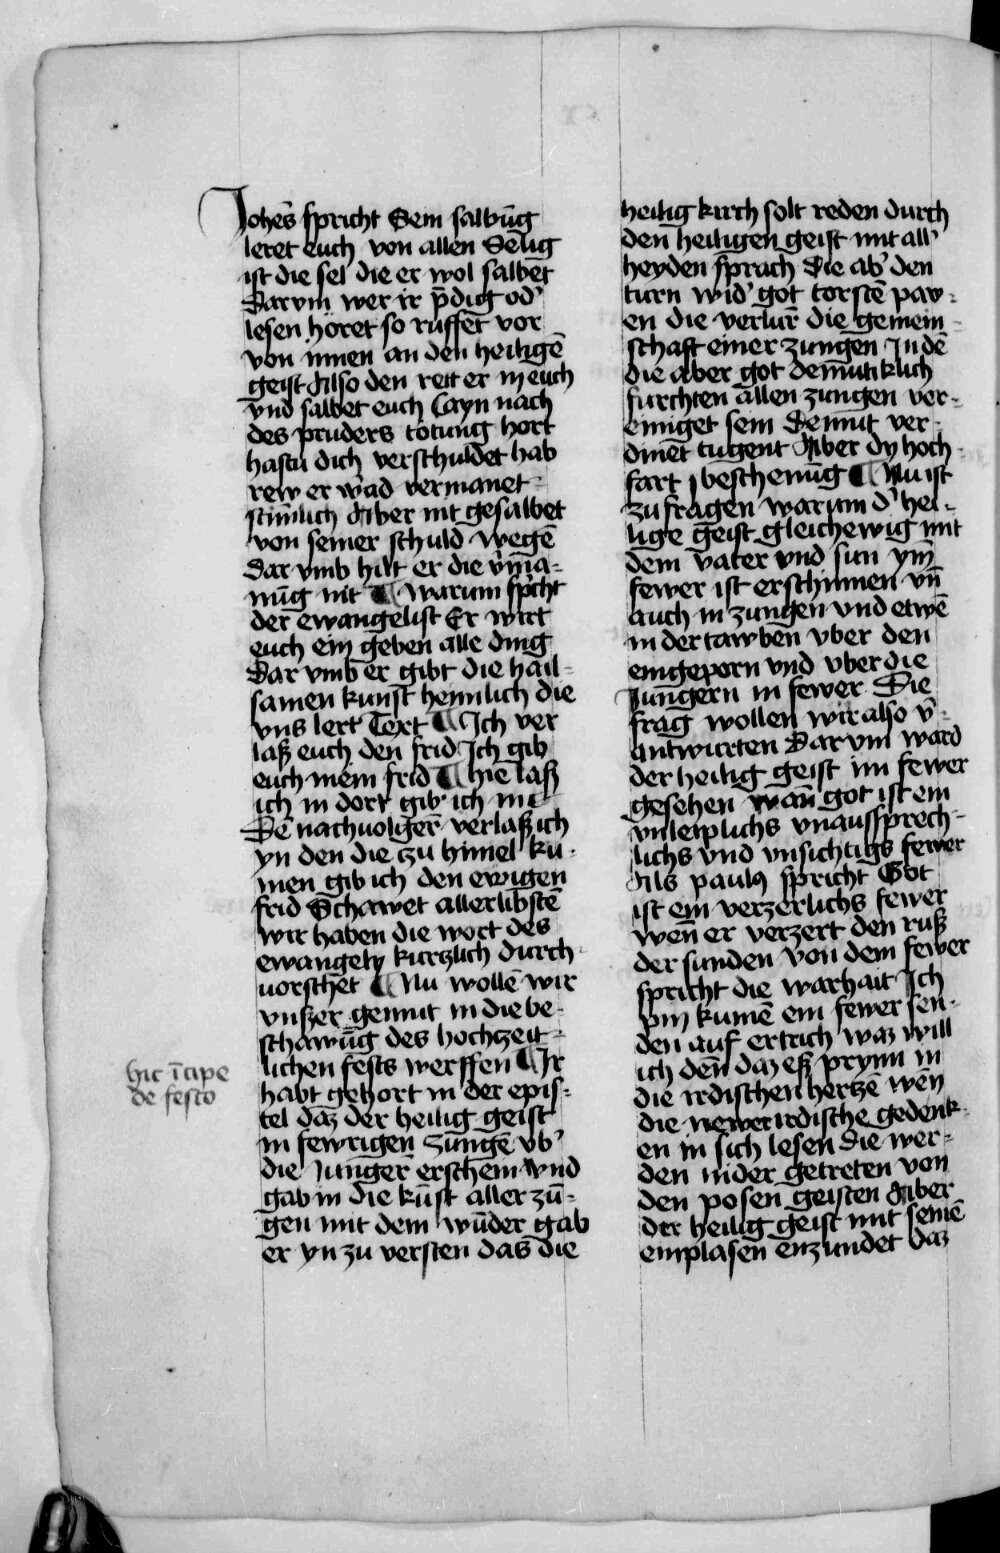 Johēs spricht Sein salbūg
leret euch von allen Selig
ist die sel die er wol salbet
Darvm wer ir p̄dig od'
lesen höret so ruffet vor
von innen an den heiligē
geist Also den reit er in euch
vnd salbet euch Cayn nach
des pruders totung hort
hastu dich verschuldet hab
rew er w'ad vermanet
stīmlich Aber nit gesalbet
von seiner schuld wegē
Dar vmb hilt er die v'ma-
nūg nit ¶ Warum sp'icht
der ewangelist Er wirt
euch ein geben alle ding
Dar vmb er gibt die hail-
samen kunst heimlich die
vns lert Text ¶ Ich ver
laß euch den frid Ich gib
euch mein frid ¶ hie laß
ich in dort gib ich in
Dē nachuolgerē verlaß ich
yn den die zu himel ku-
men gib ich den ewigen
frid Schawet allerlibstē
wir haben die wort des
ewangely kurtzlich durch-
uorschet ¶ Nu wollē wir
vnßer gemut in die be-
schawūg des hochzeit-
lichen fests werffen ¶ Ir
habt gehort in der epis-
tel daz der heilig geist
in fewrigen zungē vb'
die Iungerē erschein vnd
gab in die kūst aller zū-
gen mit dem wūder gab
er yn zu versten das die
hic īcipe
de festo
heilig kirch solt reden durch
den heiligen geist mit all'
heyden sprach Die ab' den
turn wid' got torstē paw-
en die verlurē die gemein-
schaft einer zungen In dē
die aber got demutiklich
furchten allen zungen ver-
einiget sein Demut ver-
dinēt tugent Aber dy hoch-
fart beschemūg ¶ Nu ist
zu fragen warum d' hei-
lige geist gleichewig mit
dem vater vnd sun ym
fewer ist erschinnen vn̄
auch in zungen vnd etwē
in der tawben vber den
eingeporn vnd vber die
Iungern in fewer Die
frag wollen wir also v'-
antwurten Dar vm ward
der heilig geist im fewer
gesehen wan̄ got ist ein
vnleiplichs vnaussprech-
lichs vnd vnsichtigs fewer
Als paulꝰ spricht Got
ist ein verzerlichs fewer
wen er verzert den ruß
der sunden Von dem fewer
spricht die warhait Ich
pin kumē ein fewer sen-
den auf ertrich waz will
ich den daz eß prynn in
die irdischen hertzē wēn
die newer irdische gedenk-
en in sich lesen die wer-
den nider getreten von
den posen geisten Aber
der heilig geist mit seinē
einplasen enzundet daz